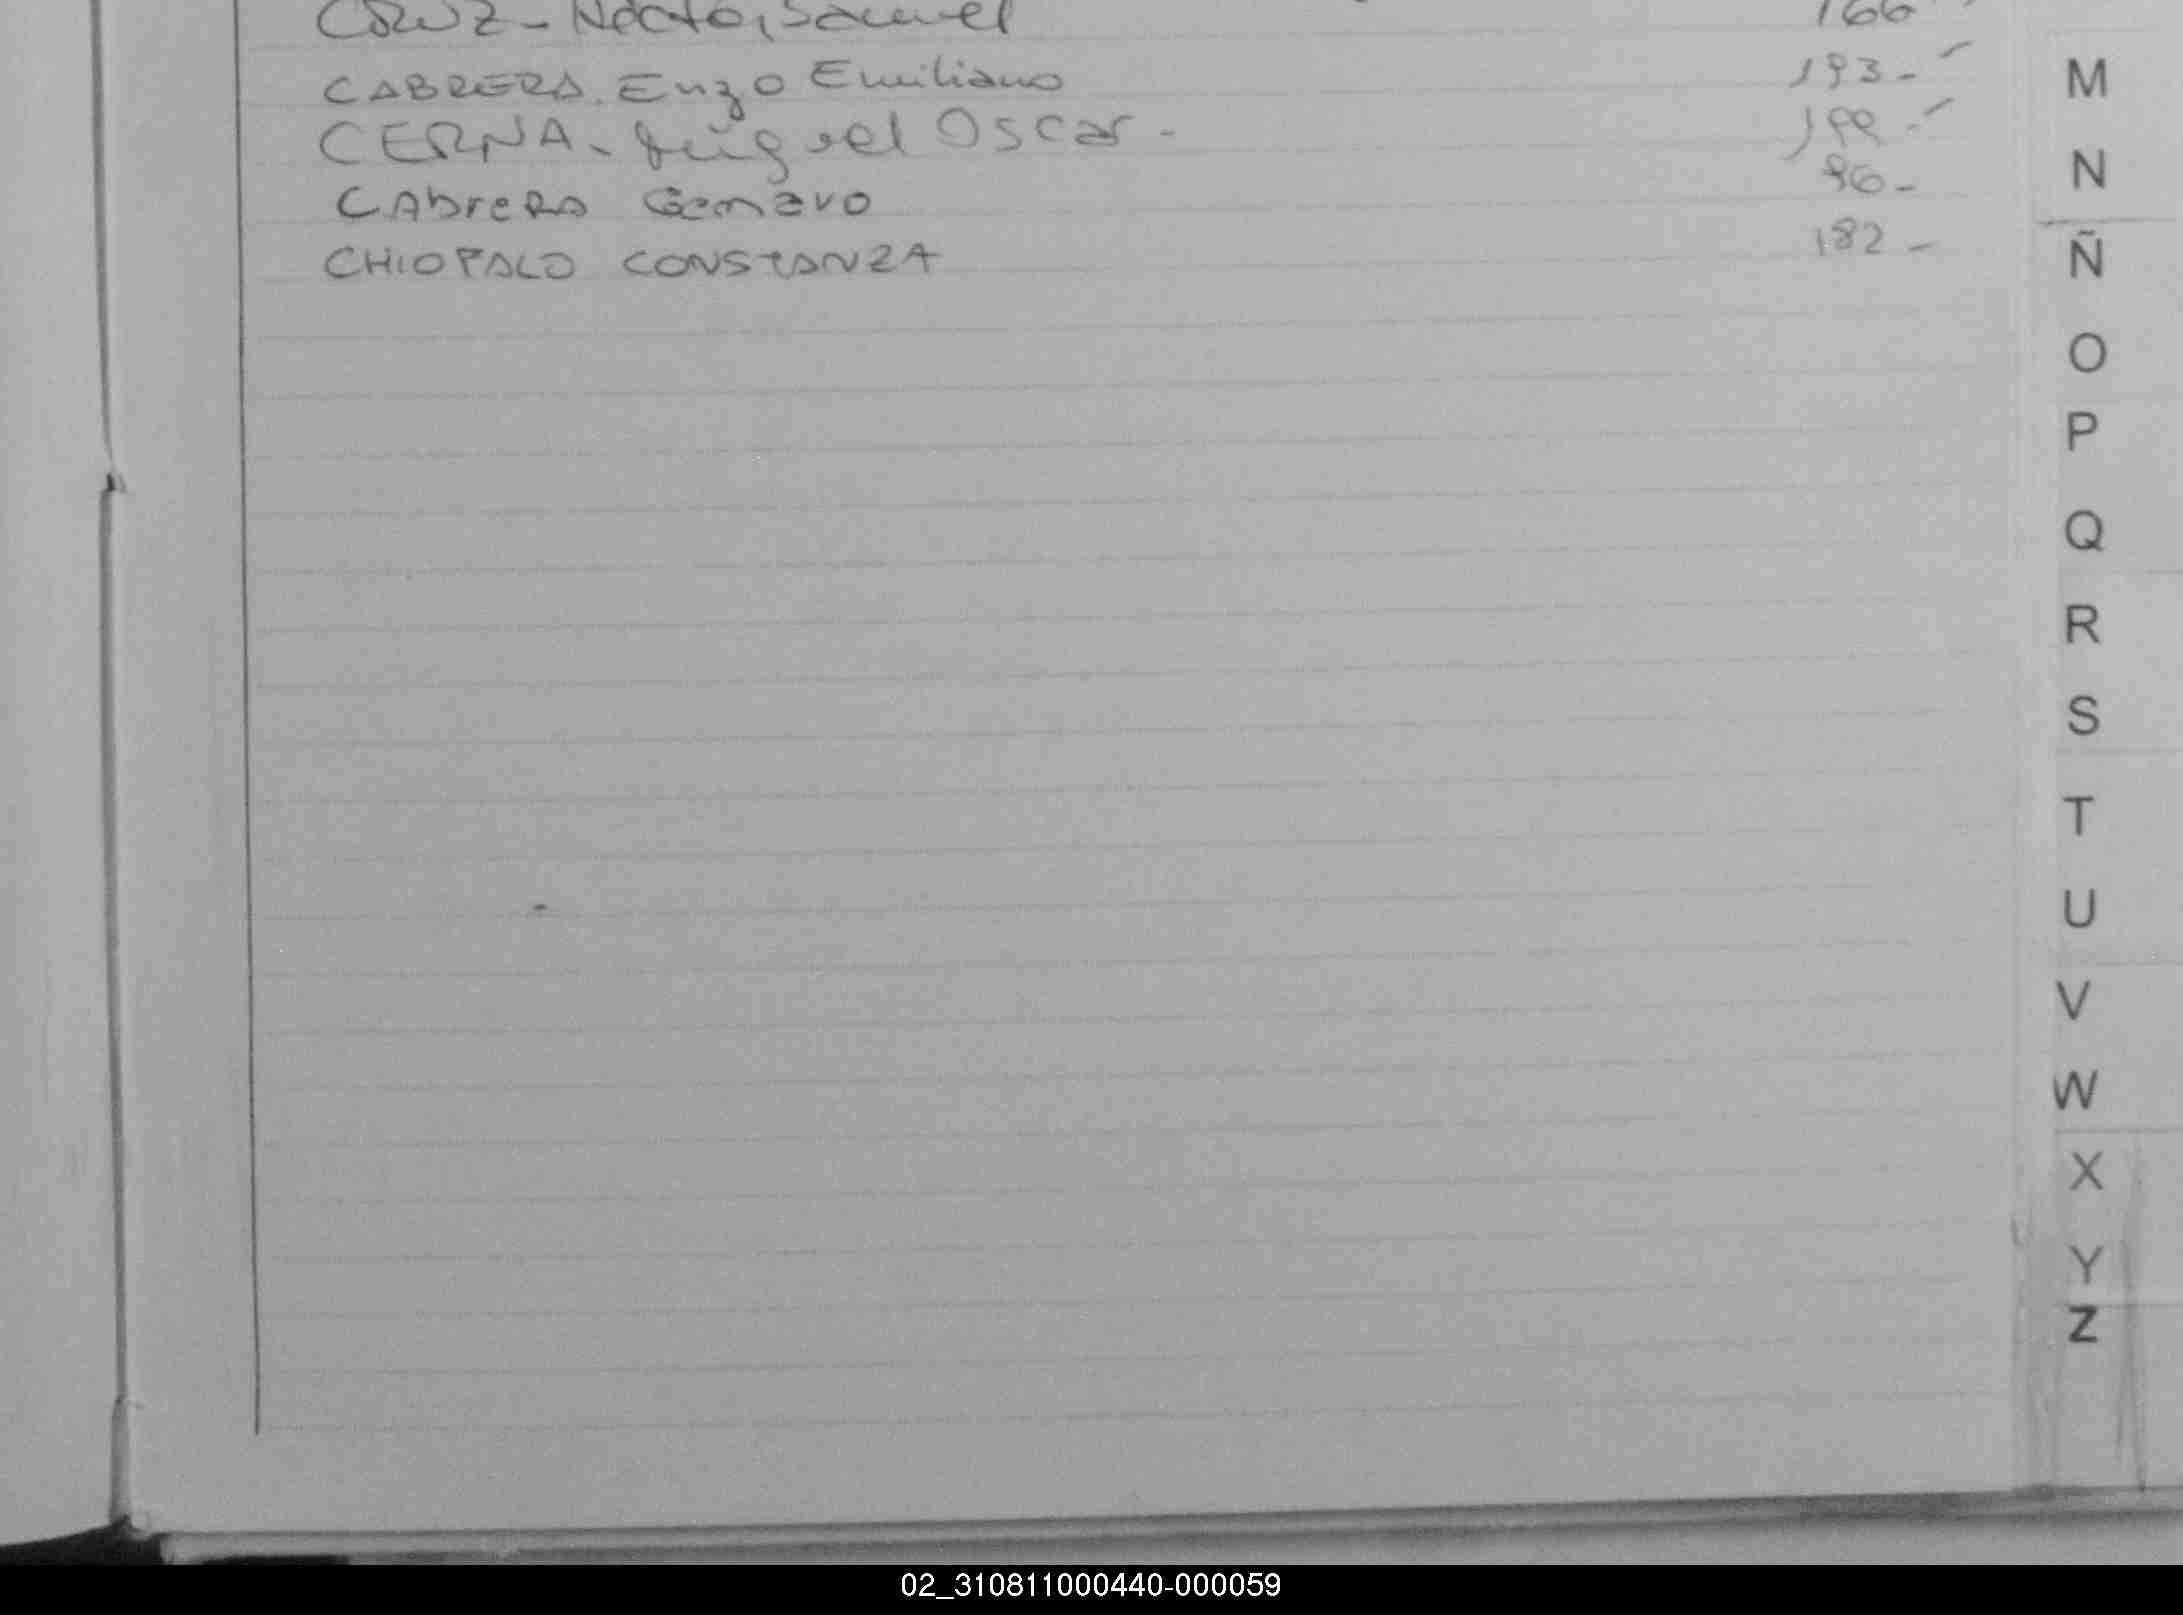 CRUZ - Samuel 166
CABRERA. Enzo Emiliano 193 -
CERNA - Miguel Oscar - 199 -
CAbrera Genaro 96 -
CHIOPALO CONSTANZA 182 -
M
N
Ñ
O
P
Q
R
S
T
U
V
W
X
Y
Z
02_310811000440-000059